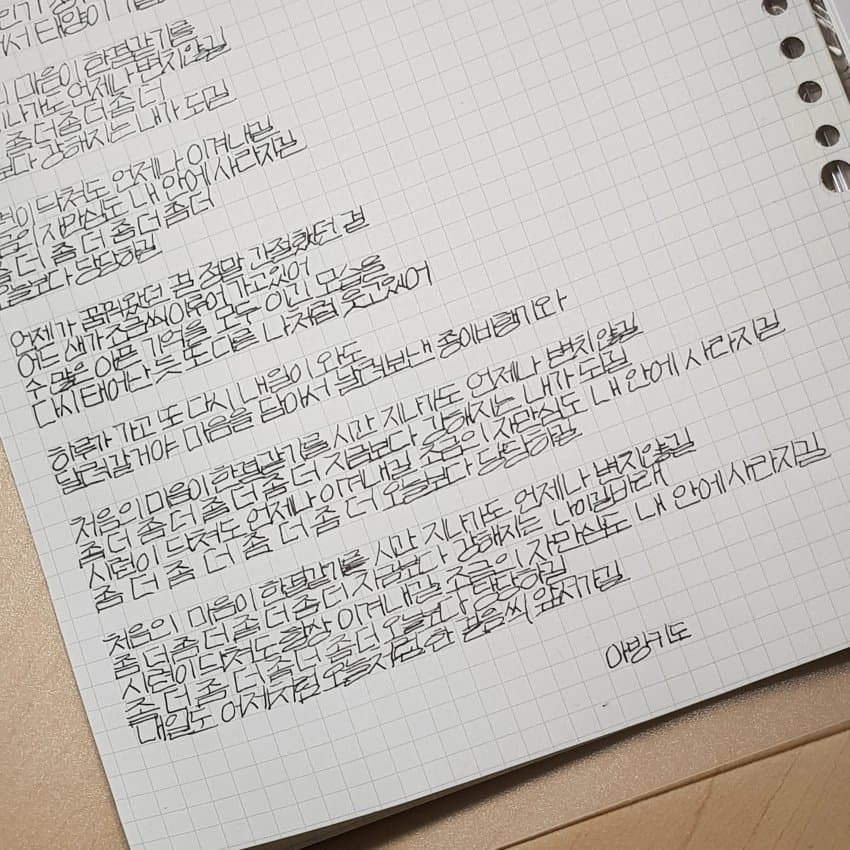 서 태양이
마음이 한결같기를
나가도 언제나 변치않길
좀 더 좀 더 좀 더
보다 강해지는 내가 되길
닥쳐도 언제나 이겨내길
자만심도 내 안에 사라지길
좀 더 좀 더 좀 더
오늘보다 당당하길
언젠가 꿈꿔왔던 걸 정말 간절했던 걸
어느 새가 조금씩 이루어 가고있어
수 많은 아픈 기억을 모두 이긴 모습은
다시 태어난 듯 또 다른 나처럼 웃고있어
하루가 가고 또 다시 내일이 와도
날려갈거야 마음을 담아서 날려보낸 종이비행기와
처음의 마음이 한결같기를 시간 지나가도 언제나 변치 않길
좀 더 좀 더 좀 더 좀 더 지금보다 강해지는 내가 되길
시련이 닥쳐도 언제나 이겨내길 조금의 자만심도 내 안에 사라지길
좀 더 좀 더 좀 더 좀 더 오늘보다 당당하길
처음의 마음이 한결같기를 시간 지나가도 언제나 변치않길
좀 더 좀 더 좀 더 좀 더 지금보다 강해지는 나이길바래
시련이 닥쳐도 항상 이겨내길 조금의 자만심도 내 안에 사라지길
좀 더 좀 더 좀 더 좀 더 오늘보다 당당하길
내일도 어제처럼 오늘처럼 한 걸음씩 앞서가길
아빙키도